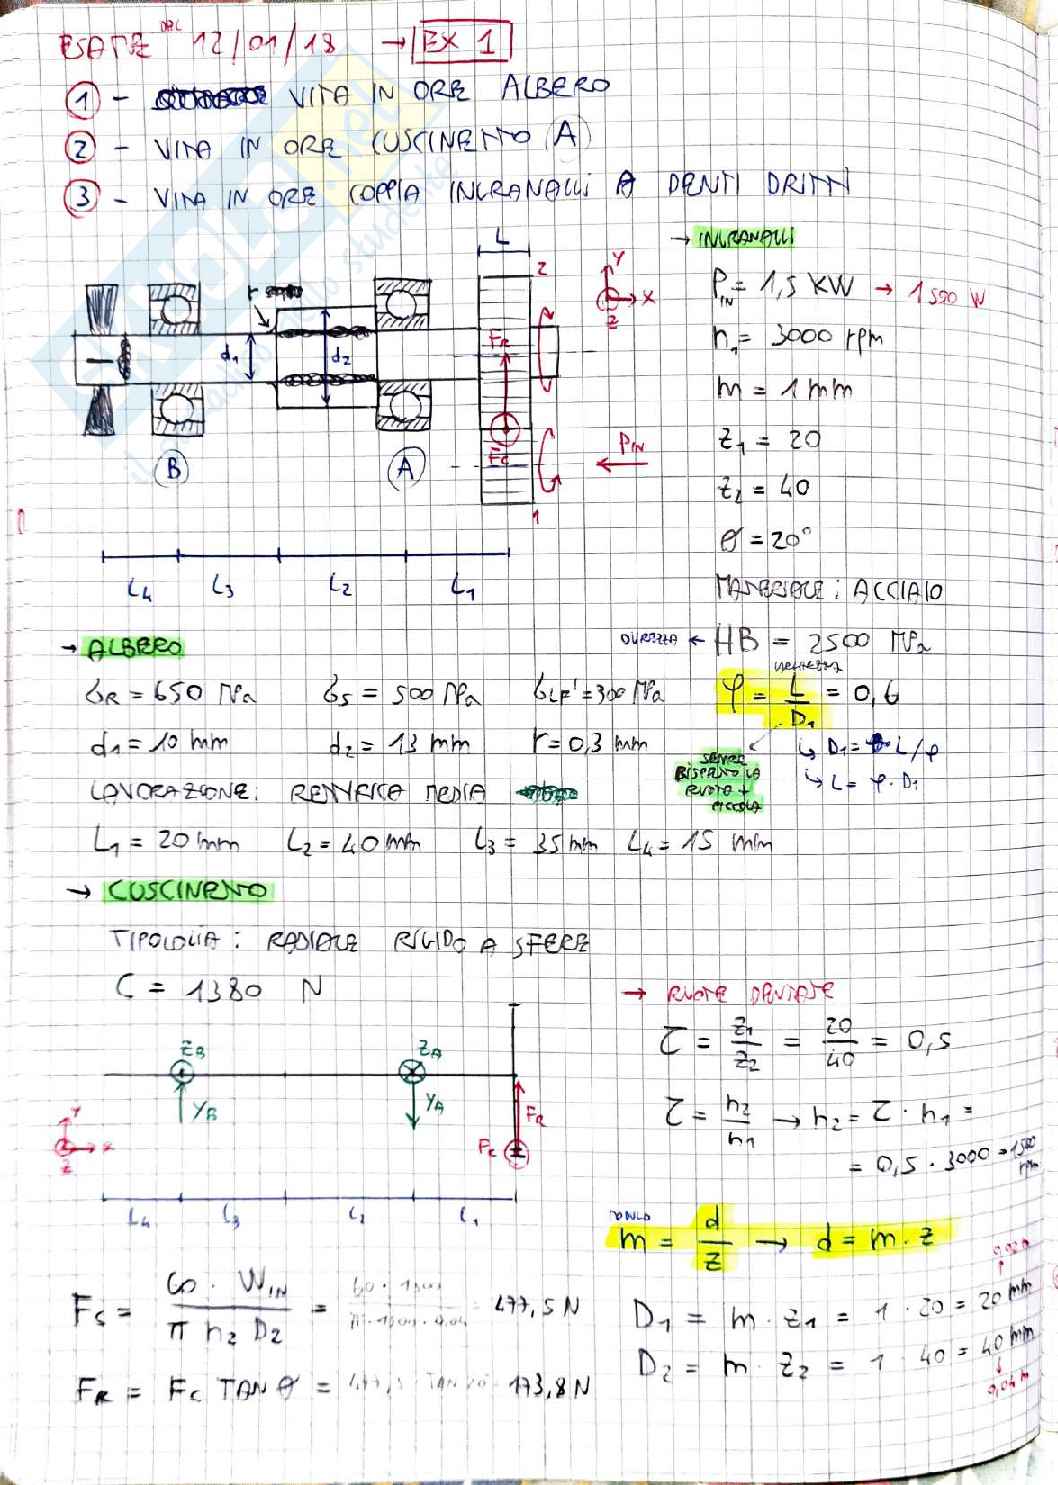 ESAME DAL 12/01/18 → EX 1
1 - VITA IN ORE ALBERO
2 - VITA IN ORE CUSCINETTO A
3 - VITA IN ORE COPPIA INGRANAGGI A DENTI DRITTI
→ INGRANAGGI
P_IN = 1,5 KW → 1500 W
n_1 = 3000 rpm
m = 1 mm
z_1 = 20
z_2 = 40
θ = 20°
MATERIALE: ACCIAIO
DUREZZA ← HB = 2500 MPa
φ = L / D_1 = 0,6
↳ D_1 = L/φ
↳ L = φ · D_1
SEMPRE
RISPETTO LA
RUOTA +
PICCOLA
L
2
Y
X
Z
r
d_1
d_2
F_R
F_C
P_IN
B
A
1
L_4 L_3 L_2 L_1
→ ALBERO
σ_R = 650 MPa σ_S = 500 MPa σ_LF' = 300 MPa
d_1 = 10 mm d_2 = 13 mm r = 0,3 mm
LAVORAZIONE: RETTIFICA MEDIA
L_1 = 20 mm L_2 = 40 mm L_3 = 35 mm L_4 = 15 mm
→ CUSCINETTO
TIPOLOGIA: RADIALE RIGIDO A SFERE
C = 1380 N
Z_B Z_A
Y_B Y_A
F_R
F_C
Y
X
Z
L_4 L_3 L_2 L_1
→ RUOTE DENTATE
τ = z_1 / z_2 = 20 / 40 = 0,5
τ = n_2 / n_1 → n_2 = τ · n_1 =
= 0,5 · 3000 = 1500 rpm
m = d / z → d = m · z
D_1 = m · z_1 = 1 · 20 = 20 mm
D_2 = m · z_2 = 1 · 40 = 40 mm
0,04 m
F_C = 60 · W_IN / π n_2 D_2 = 477,5 N
F_R = F_C TAN θ = 173,8 N